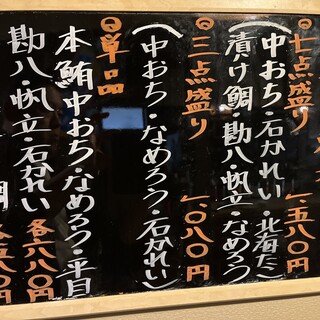 七点盛り 一、五八〇円
(中おち・石かれい・北海たこ
漬け鯛・勘八・帆立・なめろう)
三点盛り 一、〇八〇円
(中おち・なめろう・石かれい)
◎単品
本鮪中おち・なめろう・平目
勘八・帆立・石かれい 各六八〇円